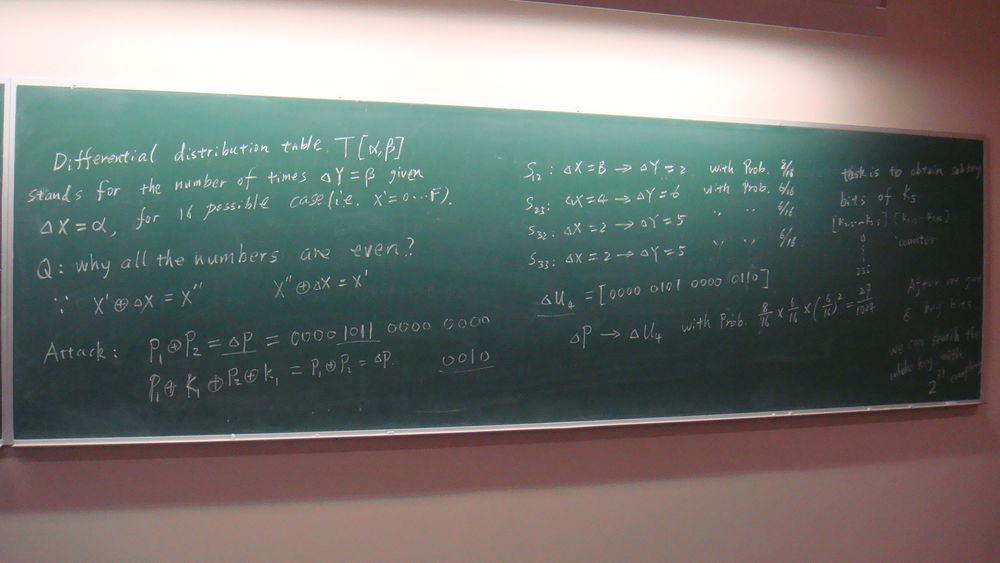 Differential distribution table. T[α,β]
stands for the number of times ΔY=β given
ΔX=α, for 16 possible case (i.e. X'=0...F).
Q: why all the numbers are even?
∵ X'⊕ΔX=X'' X''⊕ΔX=X'
Attack: P₁⊕P₂=ΔP=0000 1011 0000 0000
P₁⊕K₁⊕P₂⊕K₁=P₁⊕P₂=ΔP. 0010
S₁₂: ΔX=B→ΔY=2 with Prob. 8/16
S₂₃: ΔX=4→ΔY=6 with Prob. 6/16
S₃₂: ΔX=2→ΔY=5 〃 〃 6/16
S₃₃: ΔX=2→ΔY=5 〃 〃 6/16
ΔU₄=[0000 0101 0000 0110]
ΔP→ΔU₄ with Prob. 8/16×6/16×(6/16)²=27/1024
task is to obtain subkey
bits of K₅
0
255
counter
After we
key bits,
we can search the
whole key with
2